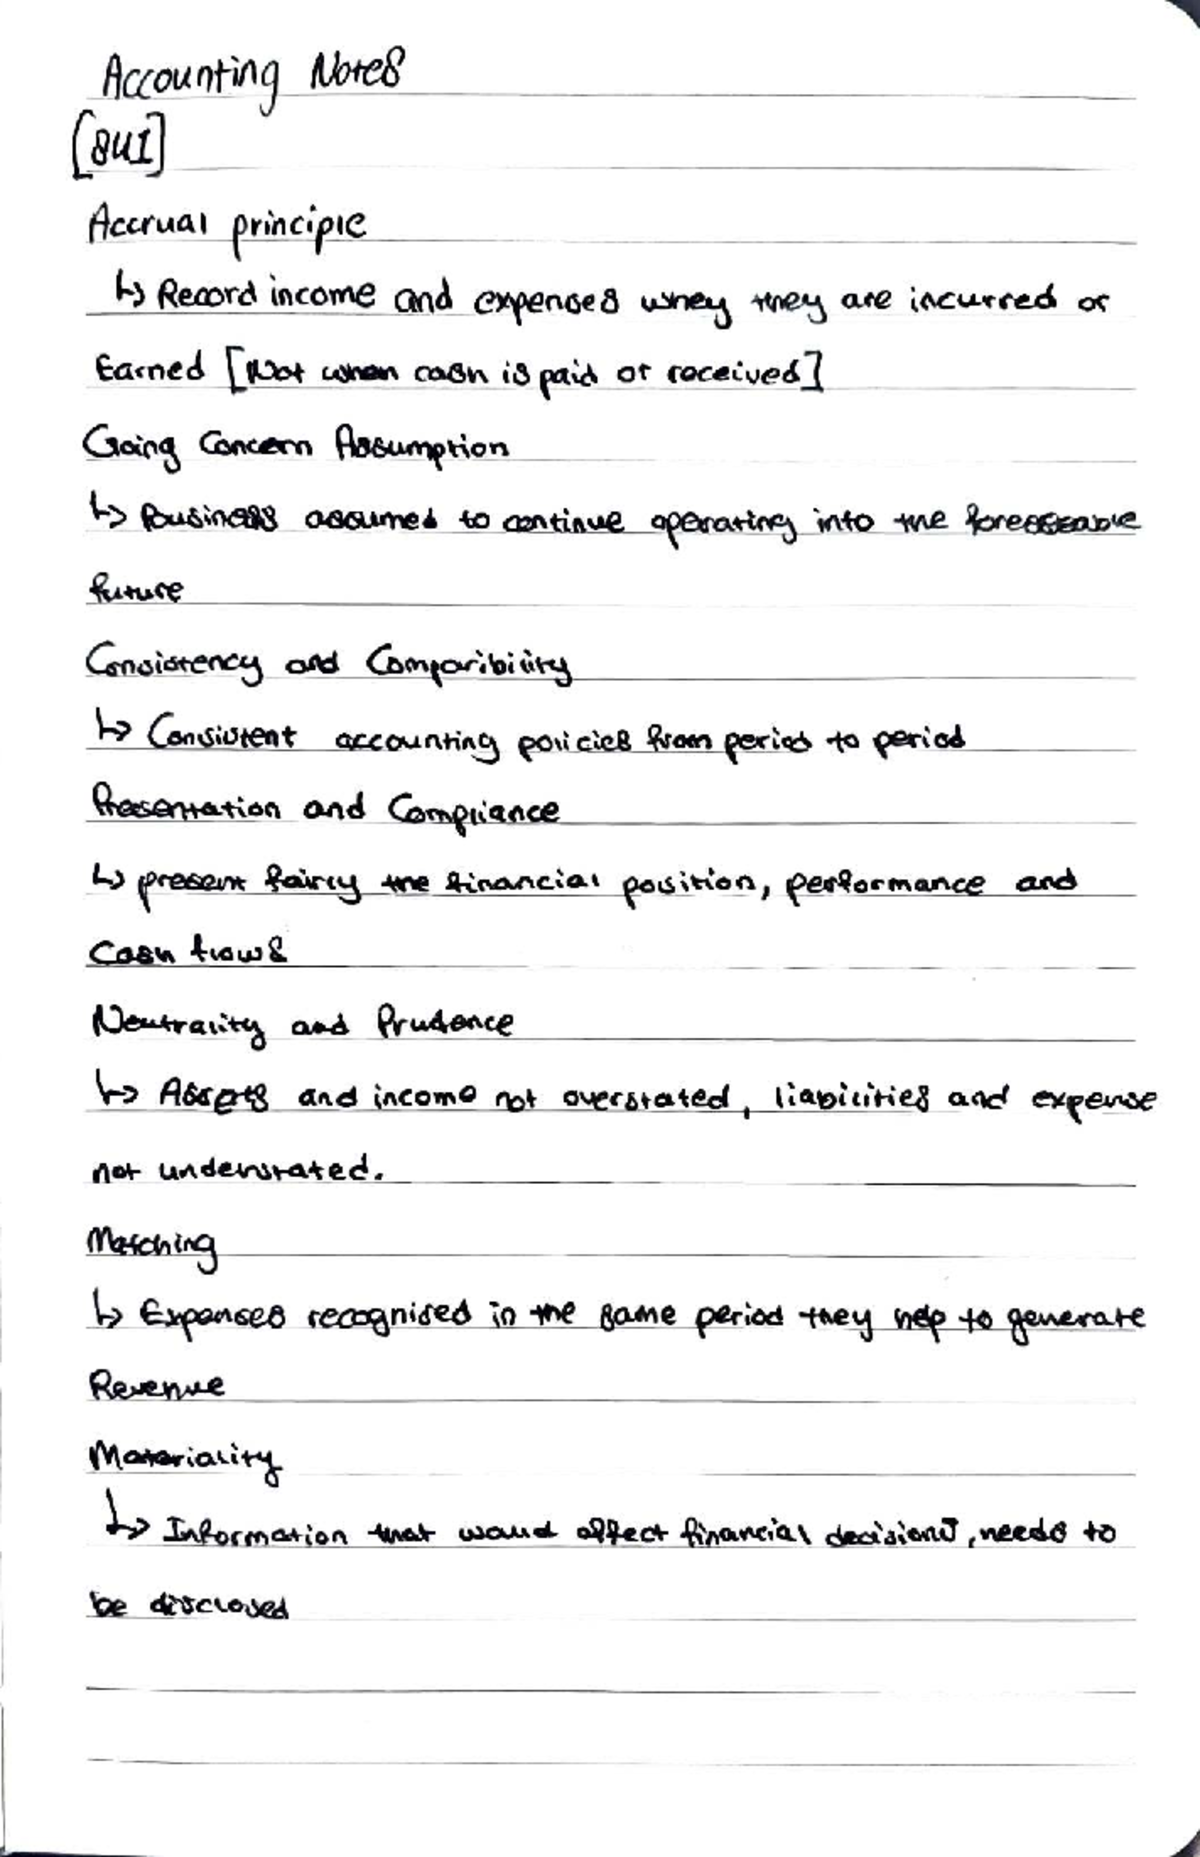 Accounting Notes
[BU1]
Accrual principle
↳ Record income and expenses whey they are incurred or
Earned [Not when cash is paid or received]
Going Concern Assumption
↳ Business assumed to continue operating into the foreseeable
future
Consistency and Comparibility
↳ Consistent accounting policies from period to period
Presentation and Compliance
↳ present fairly the financial position, performance and
Cash flows
Neutrality and Prudence
↳ Assets and income not overstated, liabilities and expense
not understated.
Matching
↳ Expenses recognised in the same period they help to generate
Revenue
Materiality
↳ Information that would affect financial decisions, needs to
be disclosed